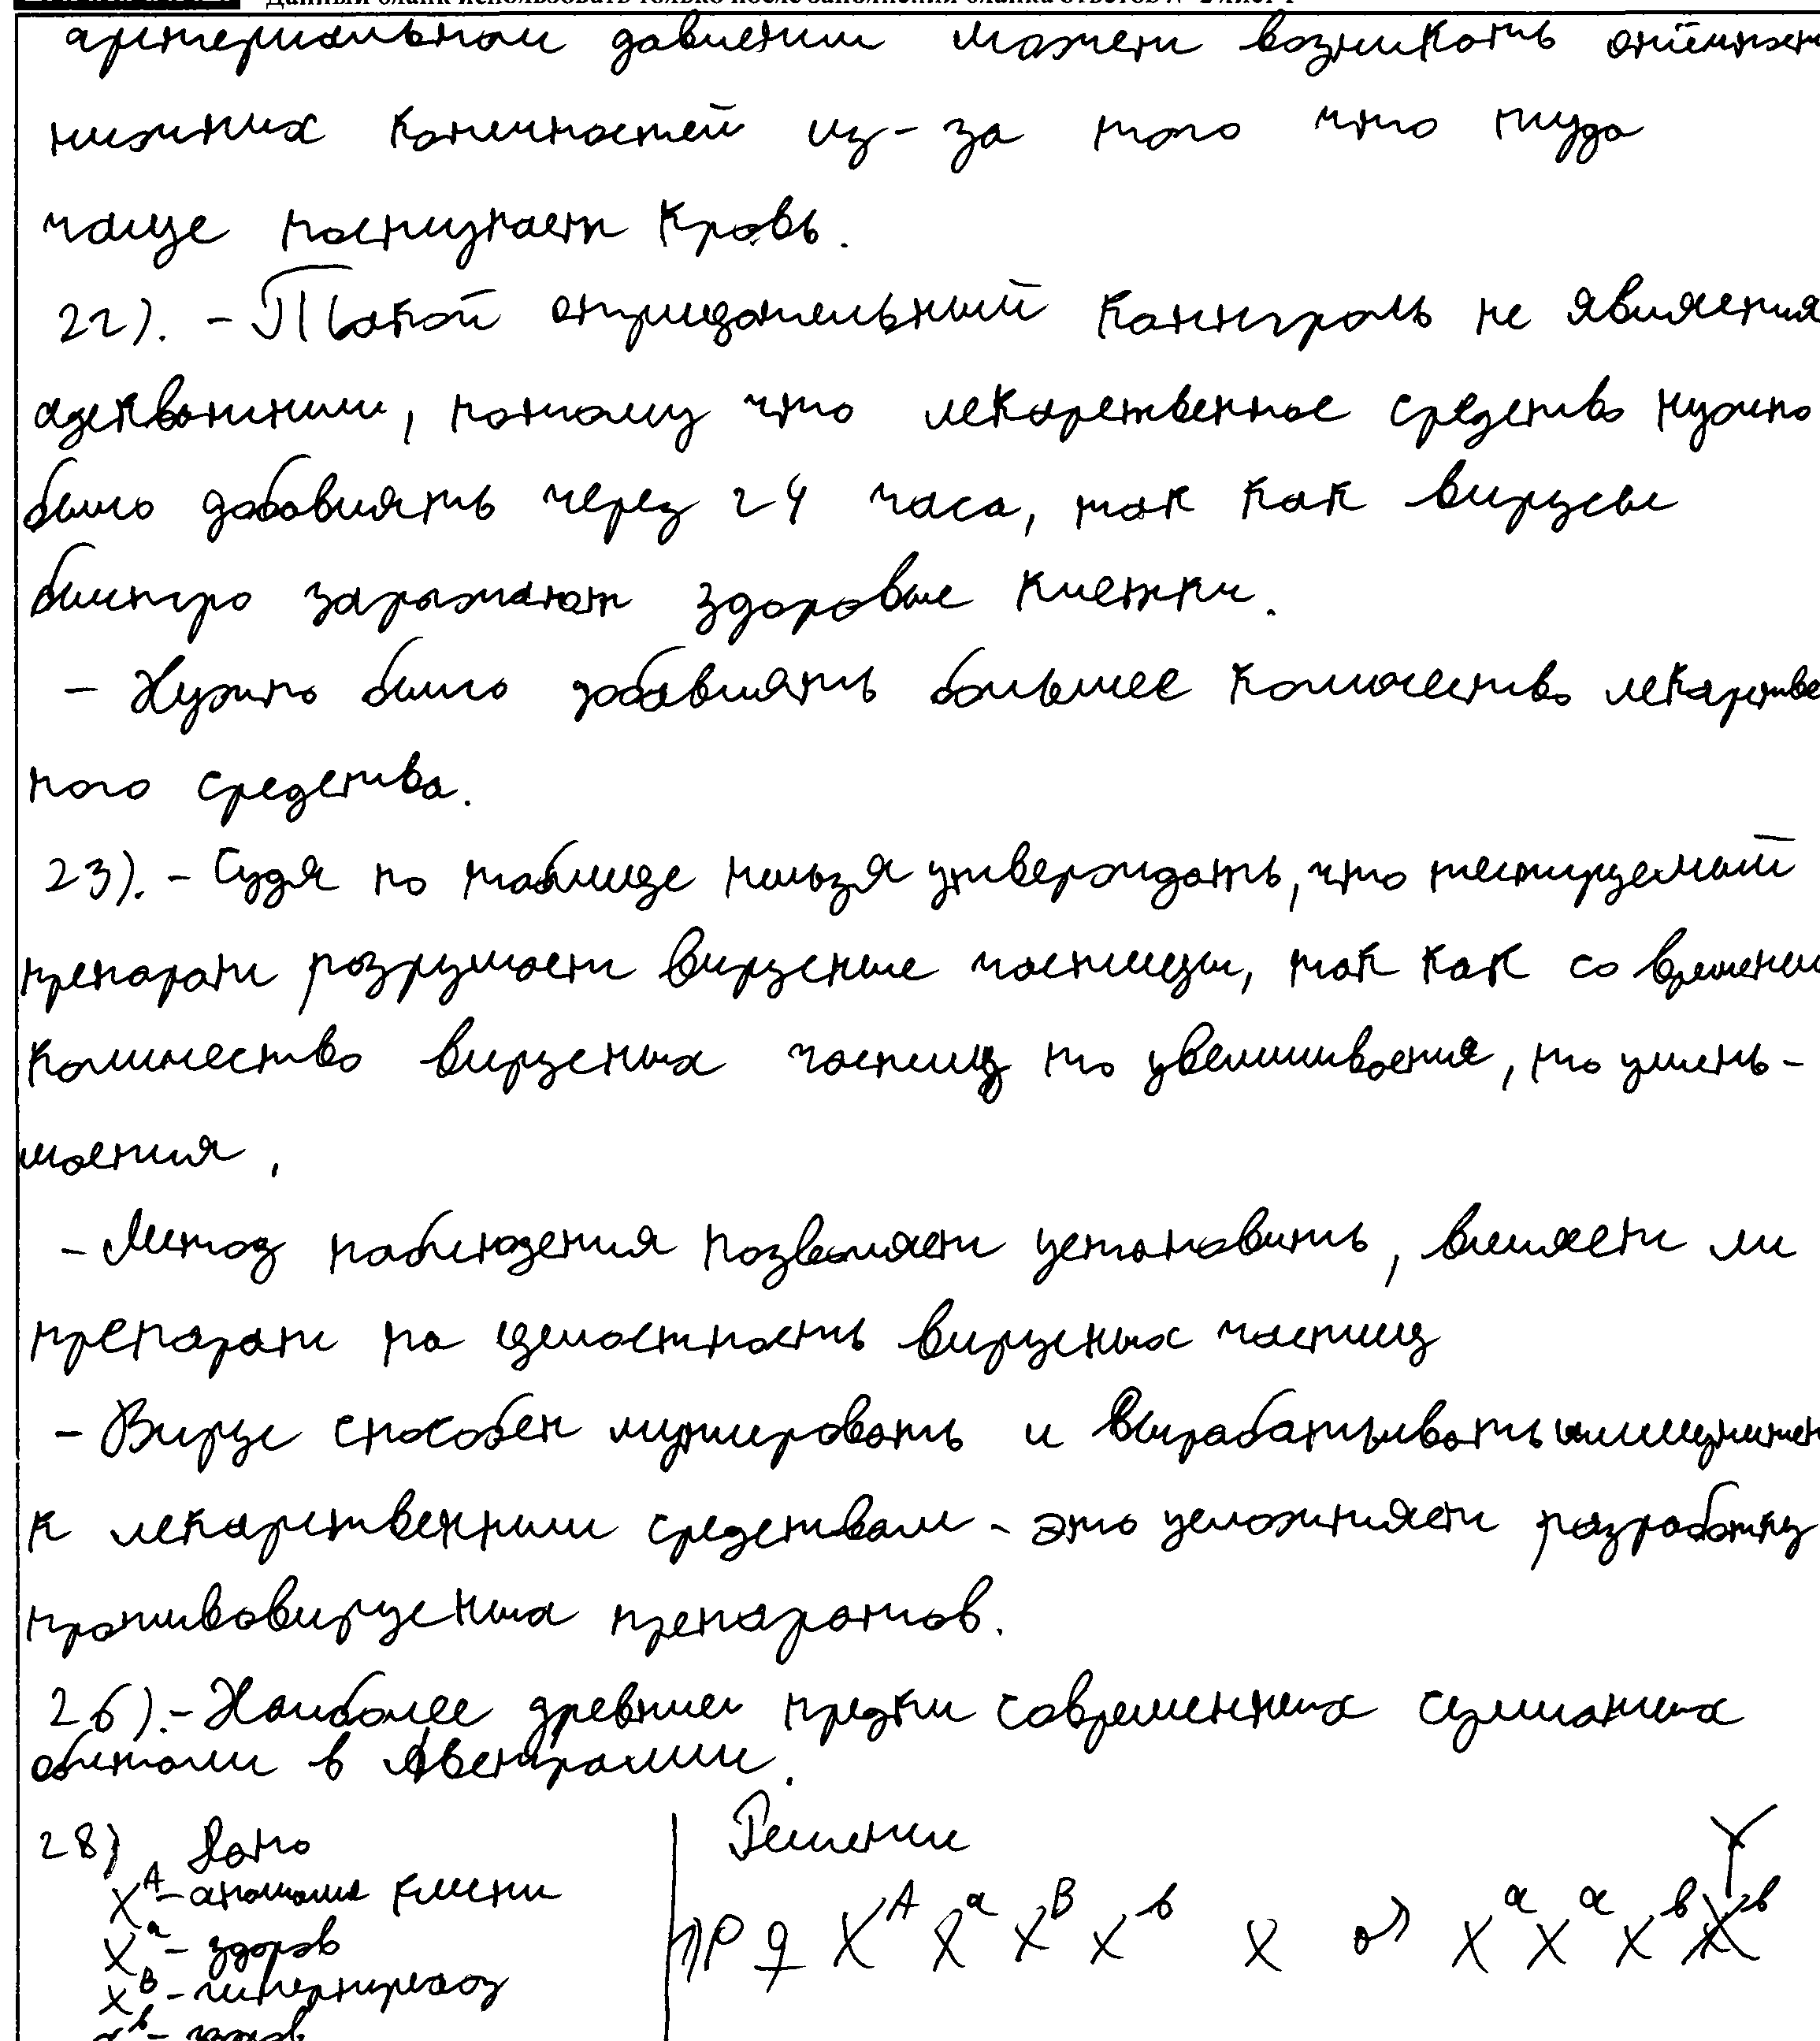 Данный бланк использовать только после заполнения бланка ответов № 2 лист 1
артериальном давлении может возникать
нижних конечностей из-за того что туда
чаще поступает кровь.
22). - Такой отрицательный контроль не является
адекватным, потому что лекарственное средство нужно
было добавлять через 24 часа, так как вирусы
быстро заражают здоровые клетки.
- Нужно было добавлять большее количество лекарстве
ного средства.
23). - Судя по таблице нельзя утверждать, что тестируемый
препарат разрушает вирусные частицы, так как со временем
количество вирусных частиц то увеличивается, то умень-
шается,
- Метод наблюдения позволяет установить, влияет ли
препарат на целостность вирусных частиц
- Вирус способен мутировать и вырабатывать иммунитет
к лекарственным средствам - это усложняет разработку
противовирусных препаратов.
26). - Наиболее древние предки современных сумчатых
обитали в Австралии.
28) Дано
X^A - аномалия кисти
X^a - здоров
X^B - гипертрихоз
x^b - здоров
Решение
1) P ♀ X^A X^a X^B X^b X ♂ X^a X^a X^b Y